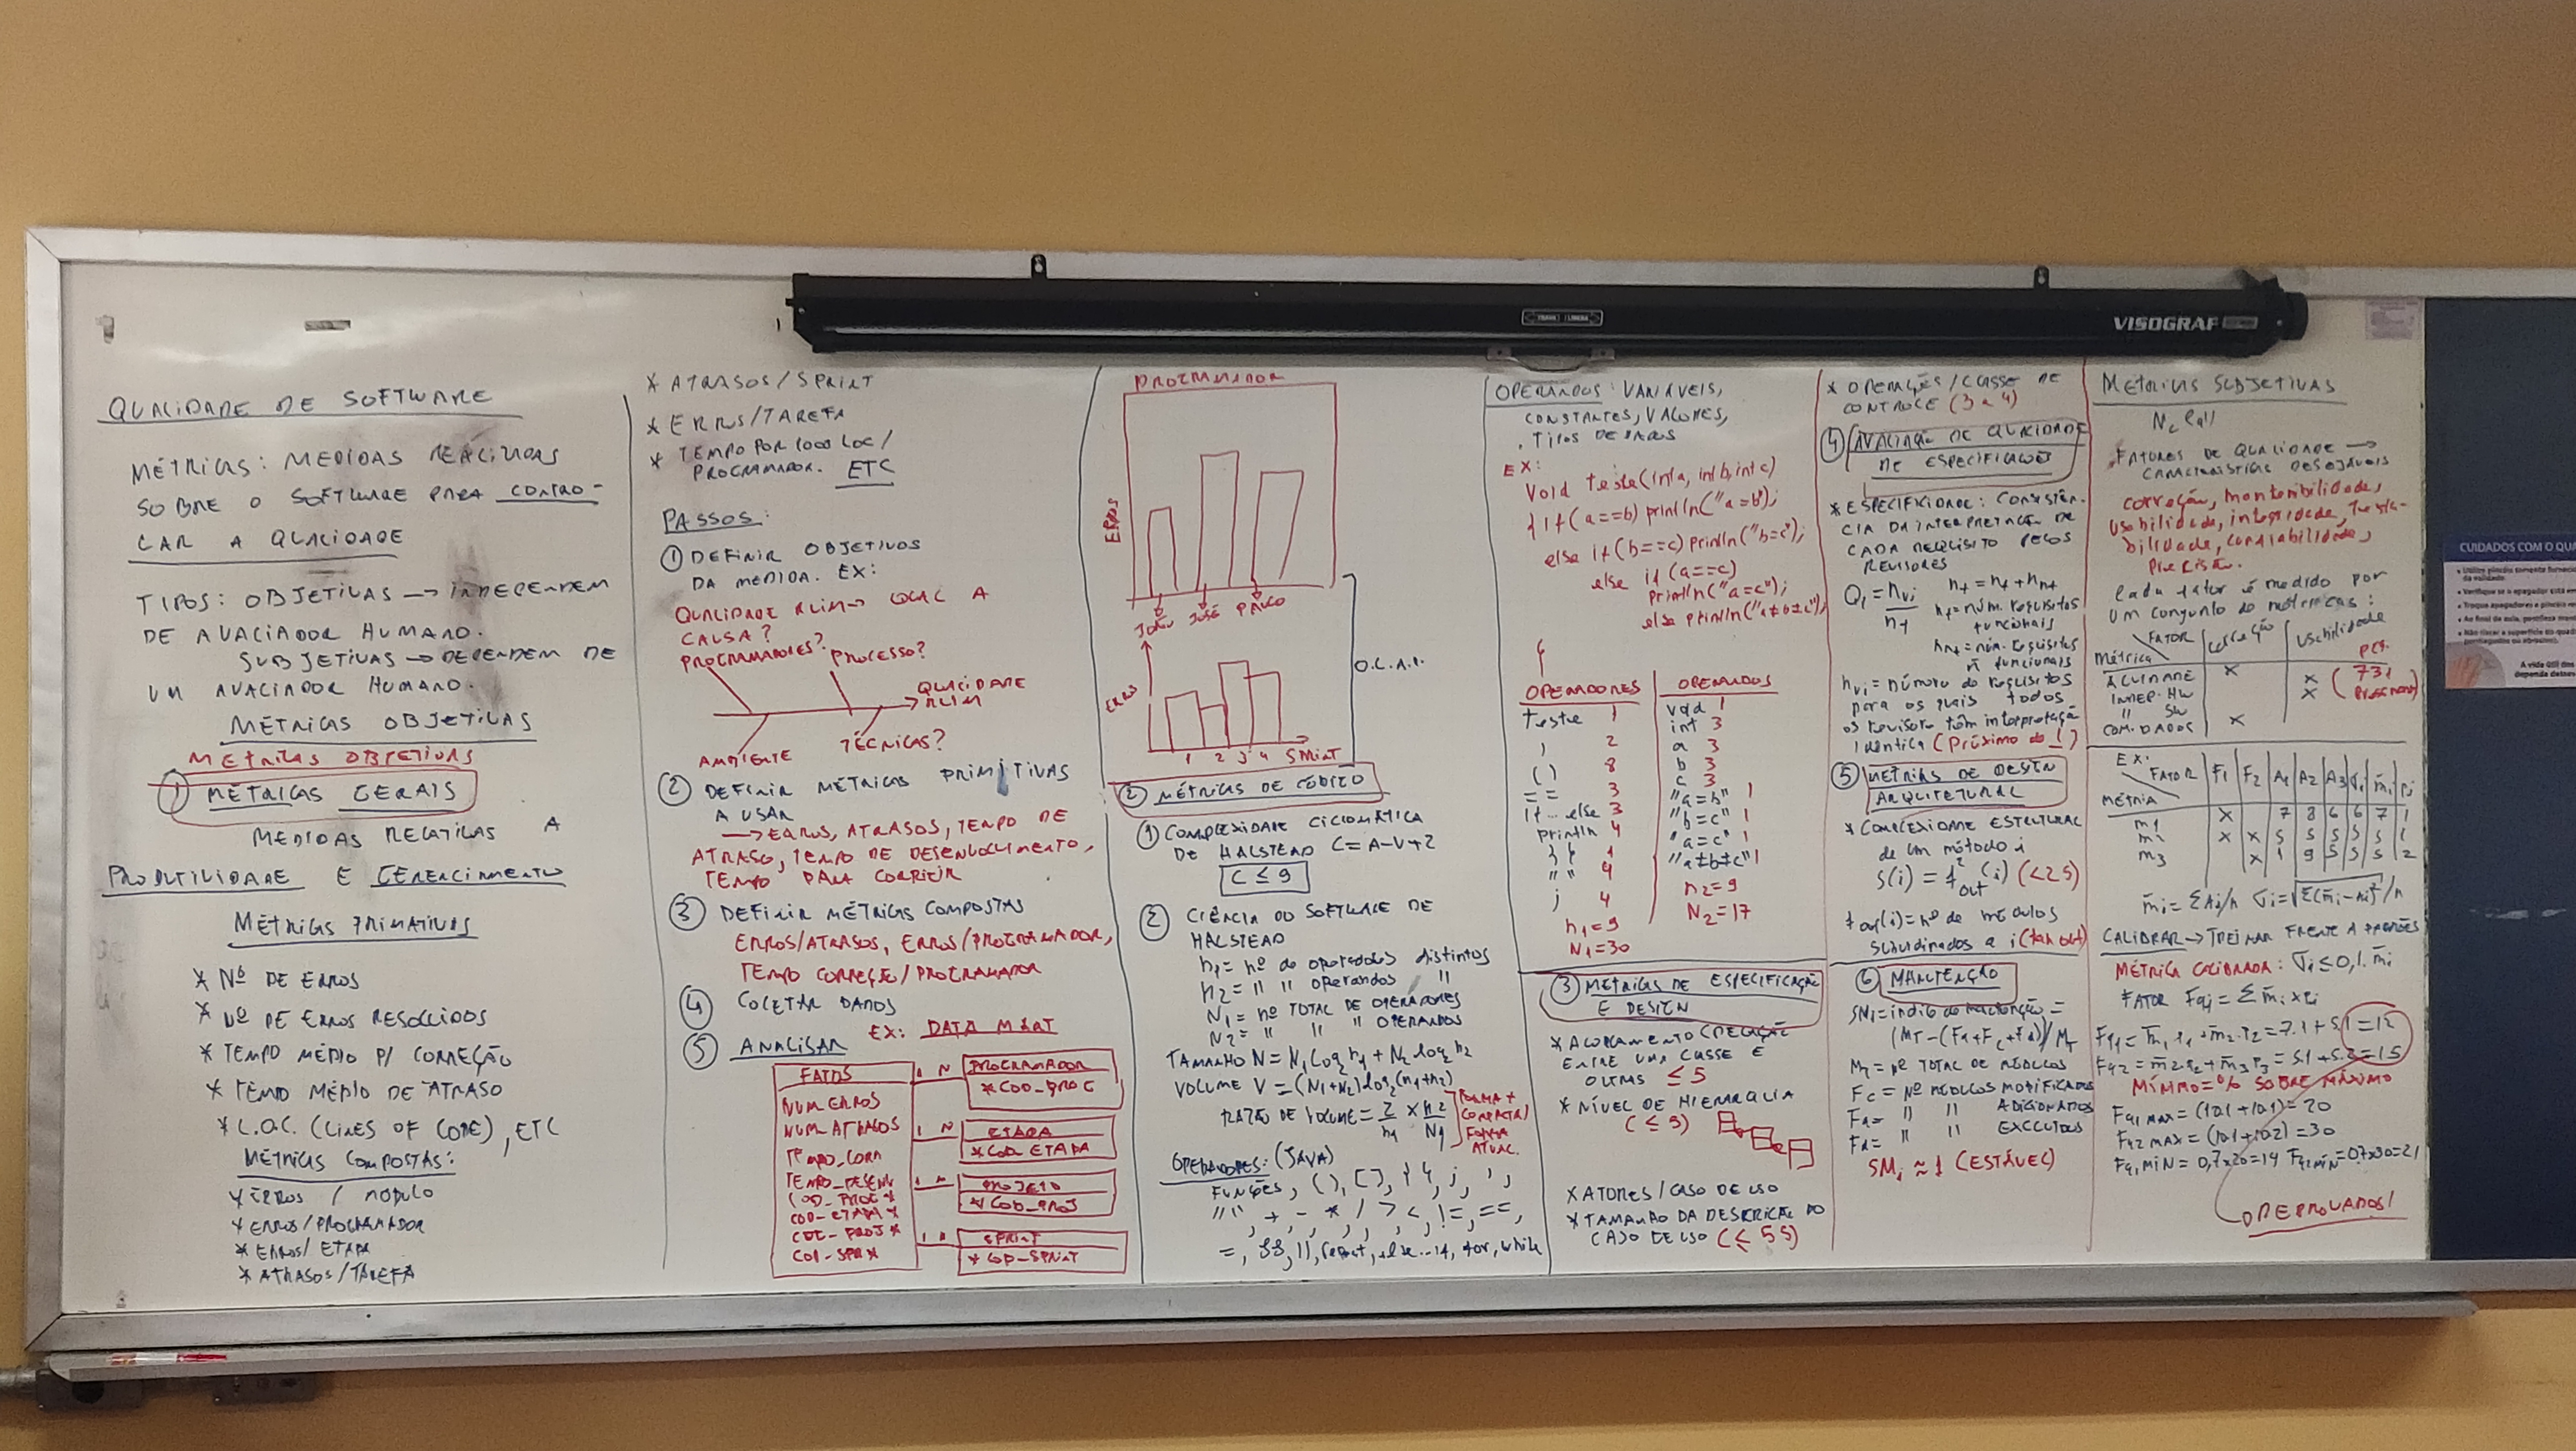 VISOGRAF
QUALIDADE DE SOFTWARE
MÉTRICAS: MEDIDAS REALIZADAS
SOBRE O SOFTWARE PARA CONTRO-
LAR A QUALIDADE
TIPOS: OBJETIVAS → INDEPENDEM
DE AVALIADOR HUMANO.
SUBJETIVAS → DEPENDEM DE
UM AVALIADOR HUMANO.
MÉTRICAS OBJETIVAS
METRICAS OBJETIVAS
① MÉTRICAS GERAIS
MEDIDAS RELATIVAS A
PRODUTIVIDADE E GERENCIAMENTO
MÉTRICAS PRIMITIVAS
* Nº DE ERROS
* Nº DE ERROS RESOLVIDOS
* TEMPO MÉDIO P/ CORREÇÃO
* TEMPO MÉDIO DE ATRASO
* L.O.C. (LINES OF CODE), ETC
MÉTRICAS COMPOSTAS:
* ERROS / MODULO
* ERROS/PROGRAMADOR
* ERROS/ ETAPA
* ATRASOS/TAREFA
* ATRASOS/SPRINT
* ERROS/TAREFA
* TEMPO POR 1000 LOC/
PROGRAMADOR. ETC
PASSOS:
① DEFINIR OBJETIVOS
DA MEDIDA. EX:
QUALIDADE RUIM → QUAL A
CAUSA?
PROGRAMADORES? PROCESSO?
QUALIDADE
RUIM
AMBIENTE TÉCNICAS?
② DEFINIR MÉTRICAS PRIMITIVAS
A USAR
→ ERROS, ATRASOS, TEMPO DE
ATRASO, TEMPO DE DESENVOLVIMENTO,
TEMPO PARA CORRIGIR
③ DEFINIR MÉTRICAS COMPOSTAS
ERROS/ATRASOS, ERROS/PROGRAMADOR,
TEMPO CORREÇÃO/PROGRAMADOR
④ COLETAR DADOS
⑤ ANALISAR EX: DATA MART
FATOS
NUM ERROS
NUM ATRASOS
TEMPO_CORR
TEMPO_DESENV
COD_PROG *
COD-ETAPA *
COD-PROJ *
COD-SPR *
1 N PROGRAMADOR
* COD_PROG
1 N ETAPA
* COD_ETAPA
1 N PROJETO
* COD_PROJ
1 N SPRINT
* COD_SPRINT
PROGRAMADOR
ERROS
JOÃO JOSÉ PAULO
ERROS
1 2 3 4 SPRINT
O.L.A.P.
② MÉTRICAS DE CÓDIGO
① COMPLEXIDADE CICLOMÁTICA
DE HALSTEAD C = A-V+2
C ≤ 9
② CIÊNCIA DO SOFTWARE DE
HALSTEAD
n1 = nº de operadores distintos
n2 = " " operandos "
N1 = nº TOTAL DE OPERADORES
N2 = " " " OPERANDOS
TAMANHO N = N1 log2 n1 + N2 log2 n2
VOLUME V = (N1+N2) log2 (n1+n2)
RAZÃO DE VOLUME = 2/n1 × n2/N1
FORMA +
COMPACTA/
FORMA
ATUAL.
OPERADORES: (JAVA)
FUNÇÕES, ( ), [ ], { }, ; ,
" ", + - * / > <, !=, ==,
=, &&, ||, repeat, else...if, for, while
OPERANDOS: VARIÁVEIS,
CONSTANTES, VALORES,
TIPOS DE DADOS
EX:
Void teste(int a, int b, int c)
{ if (a==b) println("a=b");
else if (b==c) println("b=c");
else if (a==c)
println("a=c");
else println("a≠b≠c");
}
OPERADORES OPERANDOS
teste 1 void 1
, 2 int 3
( ) 8 a 3
== 3 b 3
If...else 3 c 3
println 4 "a=b" 1
{ } 1 "b=c" 1
" " 4 "a=c" 1
; 4 "a≠b≠c" 1
n1=9 n2=9
N1=30 N2=17
③ METRICAS DE ESPECIFICAÇÃO
E DESIGN
* ACOPLAMENTO (RELAÇÃO
ENTRE UMA CLASSE E
OUTRAS ≤ 5
* NÍVEL DE HIERARQUIA
(≤ 9)
* ATORES / CASO DE USO
* TAMANHO DA DESCRIÇÃO DO
CASO DE USO (≤ 55)
* OPERAÇÕES/CLASSE DE
CONTROLE (3 a 4)
④ AVALIAÇÃO DE QUALIDADE
DE ESPECIFICAÇÃO
* ESPECIFICIDADE: CONSISTÊN-
CIA DA INTERPRETAÇÃO DE
CADA REQUISITO PELOS
REVISORES
Q1 = nvi / nt nt = nf + nnf
nf = núm. requisitos
funcionais
nnf = núm. requisitos
ñ funcionais
nvi = número de requisitos
para os quais todos
os revisores têm interpretação
idêntica (Próximo de 1)
⑤ METRICAS DE DESIGN
ARQUITETURAL
* COMPLEXIDADE ESTRUTURAL
de um método i
S(i) = f²out (i) (<25)
fout(i) = nº de módulos
subordinados a i (fan out)
⑥ MANUTENÇÃO
SMi = índice de manutenção =
(MT - (Fa+Fc+Fd))/MT
MT = nº TOTAL DE MÓDULOS
Fc = Nº MÓDULOS MODIFICADOS
Fa = " " ADICIONADOS
Fd = " " EXCLUÍDOS
SMi ≈ 1 (ESTÁVEL)
MÉTRICAS SUBJETIVAS
FATORES DE QUALIDADE →
CARACTERÍSTICAS DESEJÁVEIS
correção, mantenibilidade,
usabilidade, integridade, testa-
bilidade, confiabilidade,
precisão.
Cada fator é medido por
um conjunto de métricas:
FATOR correção Usabilidade
Métrica
ACUIDADE X
INDEP. HW X
" SW X
COM. DADOS X
EX.
FATOR F1 F2 A1 A2 A3 σi m̄i pi
MÉTRICA
m1 X 7 8 6 6 7 1
m2 X X 5 5 5 5 5 1
m3 X 1 9 5 5 5 2
m̄i = ΣAi/n σi = √Σ(m̄i - Ai)²/n
CALIBRAR → TREINAR FRENTE A PADRÕES
MÉTRICA CALIBRADA: σi ≤ 0,1. m̄i
FATOR Fqj = Σ m̄i × pi
Fq1 = m̄1.p1 + m̄2.p2 = 7.1 + 5.1 = 12
Fq2 = m̄2.p2 + m̄3.p3 = 5.1 + 5.2 = 15
MÍNIMO = % SOBRE MÁXIMO
Fq1 MAX = (10.1 + 10.1) = 20
Fq2 MAX = (10.1 + 10.2) = 30
Fq1 MIN = 0,7x20 = 14 Fq2 MIN = 0,7x30 = 21
REPROVADOS!
CUIDADOS COM O QUA